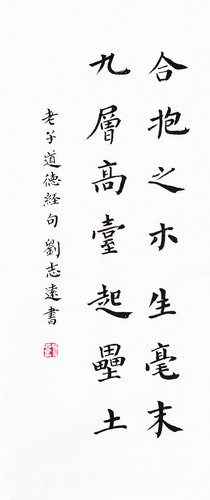 合抱之木生毫末
九層高臺起壘土
老子道德經句 劉志遠書